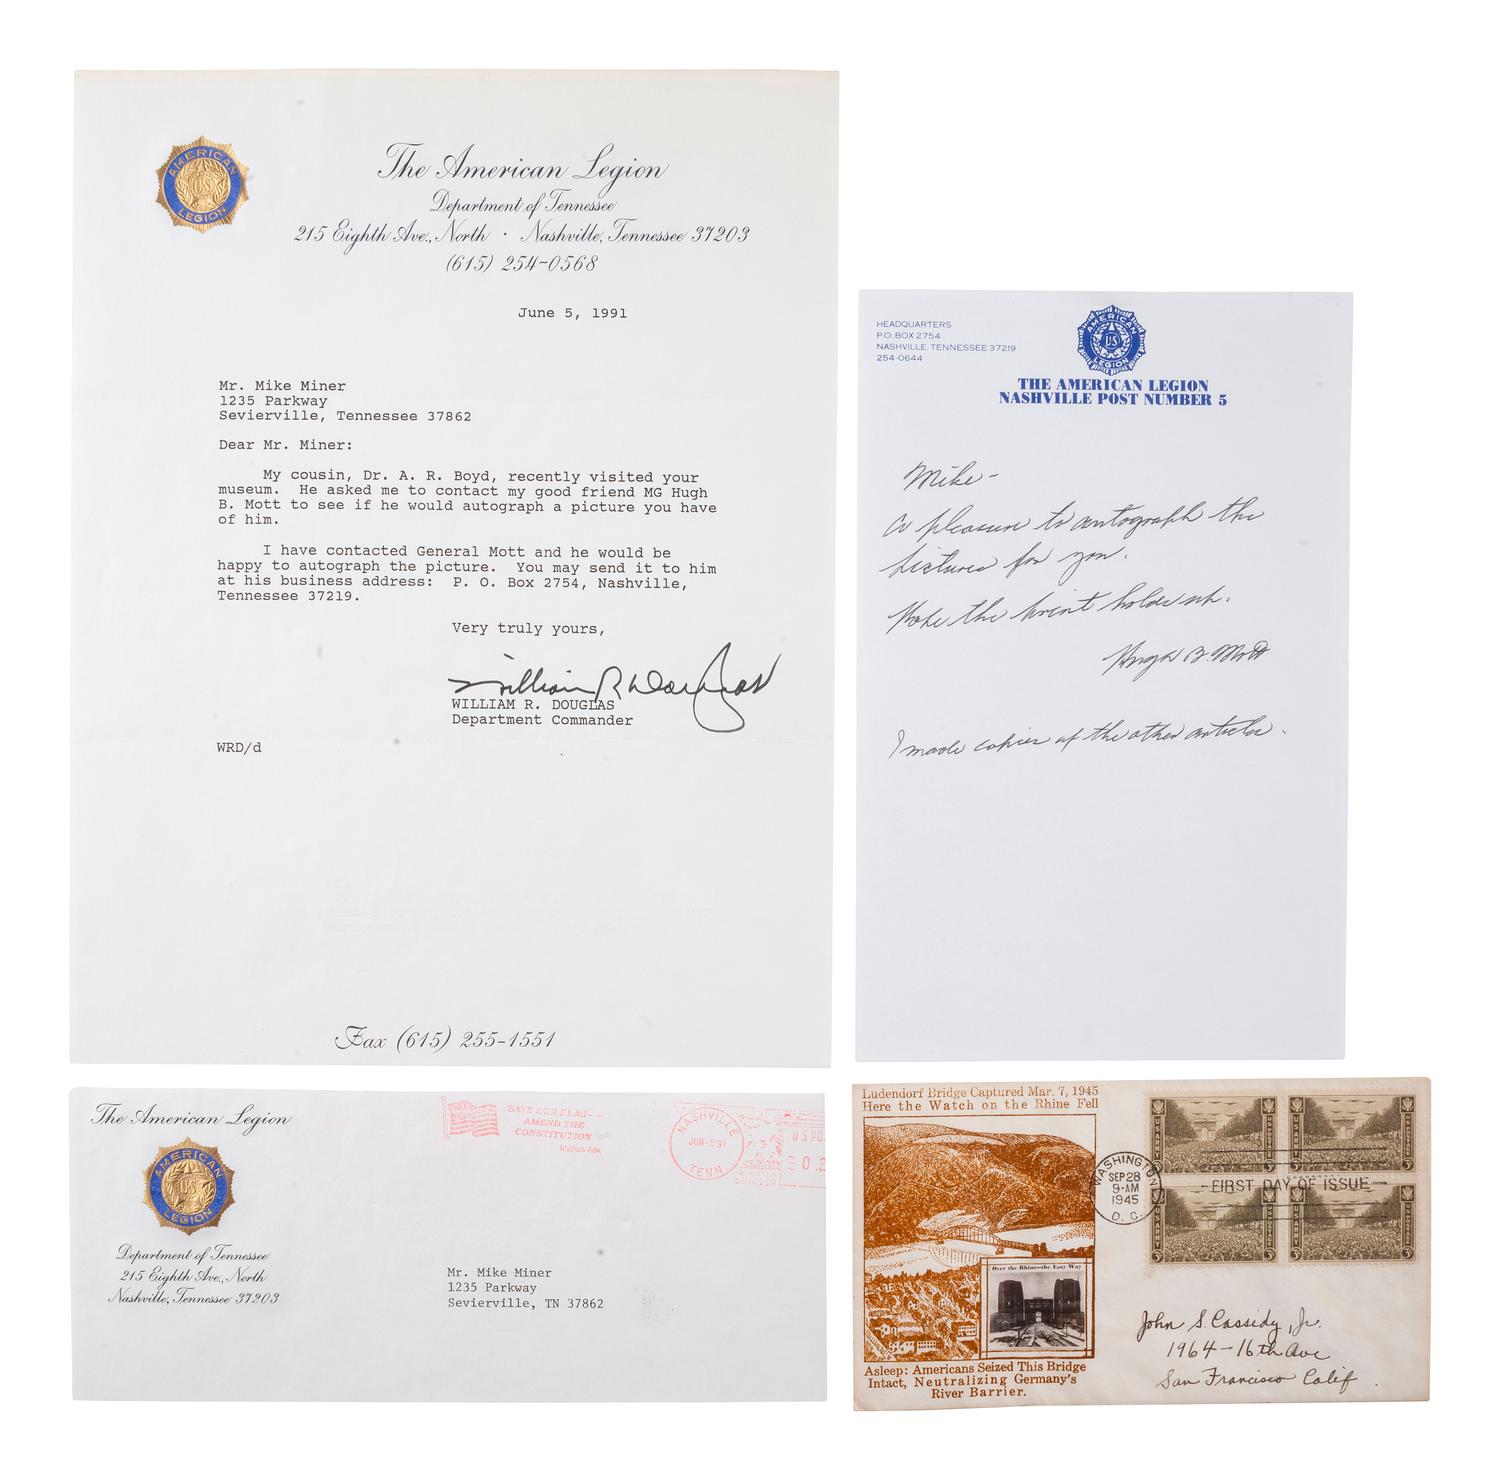 AMERICAN
US
LEGION
The American Legion
Department of Tennessee
215 Eighth Ave., North · Nashville, Tennessee 37203
(615) 254-0568
June 5, 1991
Mr. Mike Miner
1235 Parkway
Sevierville, Tennessee 37862
Dear Mr. Miner:
My cousin, Dr. A. R. Boyd, recently visited your
museum. He asked me to contact my good friend MG Hugh
B. Mott to see if he would autograph a picture you have
of him.
I have contacted General Mott and he would be
happy to autograph the picture. You may send it to him
at his business address: P. O. Box 2754, Nashville,
Tennessee 37219.
Very truly yours,
William R Douglas
WILLIAM R. DOUGLAS
Department Commander
WRD/d
Fax (615) 255-1551
HEADQUARTERS
P.O. BOX 2754
NASHVILLE, TENNESSEE 37219
254-0644
AMERICAN
US
LEGION
THE AMERICAN LEGION
NASHVILLE POST NUMBER 5
Mike -
A pleasure to autograph the
pictures for you.
Hope the print holds up.
Hugh B. Mott
I made copies of the other articles.
The American Legion
AMERICAN
US
LEGION
Department of Tennessee
215 Eighth Ave., North
Nashville, Tennessee 37203
SAVE OUR FLAG--
AMEND THE
CONSTITUTION
Matters Adv.
NASHVILLE
JUN-5'91
TENN
U.S.PO
0.2
Mr. Mike Miner
1235 Parkway
Sevierville, TN 37862
Ludendorf Bridge Captured Mar. 7, 1945
Here the Watch on the Rhine Fell
Over the Rhine—the Easy Way
Asleep: Americans Seized This Bridge
Intact, Neutralizing Germany's
River Barrier.
WASHINGTON
SEP 28
9-AM
1945
D. C.
FIRST DAY OF ISSUE
U.S. ARMY
U.S. POSTAGE
3¢
U.S. ARMY
U.S. POSTAGE
3¢
U.S. ARMY
U.S. POSTAGE
3¢
U.S. ARMY
U.S. POSTAGE
3¢
John S. Cassidy, Jr.
1964-16th Ave
San Francisco Calif.